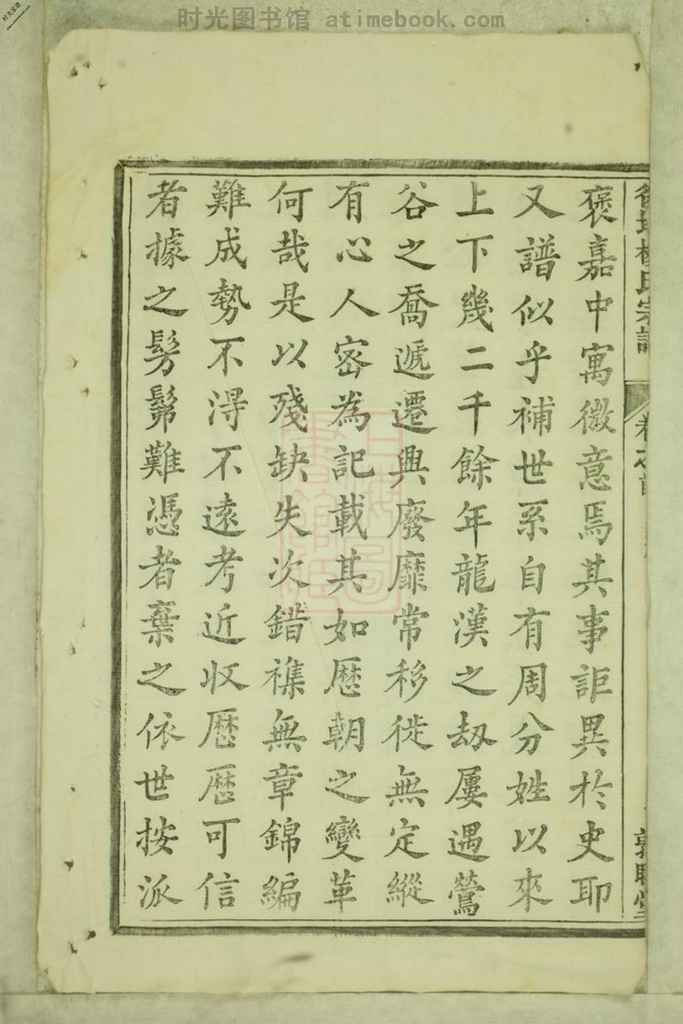 时光图书馆 atimebook.com
氏宗譜
卷之首
褒嘉中寓微意焉其事詎異於史耶
又譜似乎補世系自有周分姓以來
上下幾二千餘年龍漢之劫屢遇鶯
谷之喬遞遷興廢靡常移徙無定縱
有心人密為記載其如歷朝之變革
何哉是以殘缺失次錯襍無章錦編
難成勢不淂不遠考近収歷歷可信
者據之髣髴難憑者棄之依世按派